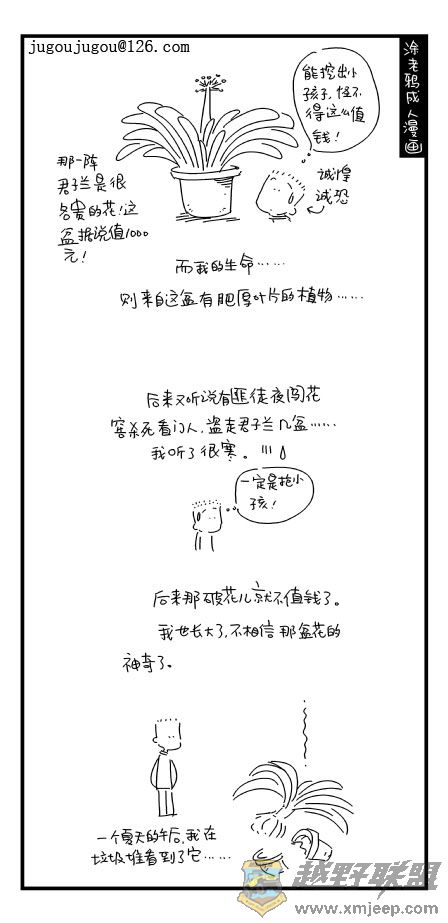 jugoujugou@126.com
涂老鸦成人漫画
能挖出小
孩子,怪不
得这么值
钱!
那一阵
君子兰是很
名贵的花!这
盆据说值1000
元!
诚惶
诚恐
而我的生命……
则来自这盆有肥厚叶片的植物……
后来又听说有匪徒夜闯花
窖杀死看门人,盗走君子兰几盆……
我听了很寒。!!!
一定是抢小
孩!
后来那破花儿就不值钱了。
我也长大了,不相信那盆花的
神奇了。
一个夏天的午后,我在
垃圾堆看到了它……
越野联盟
www.xmjeep.com